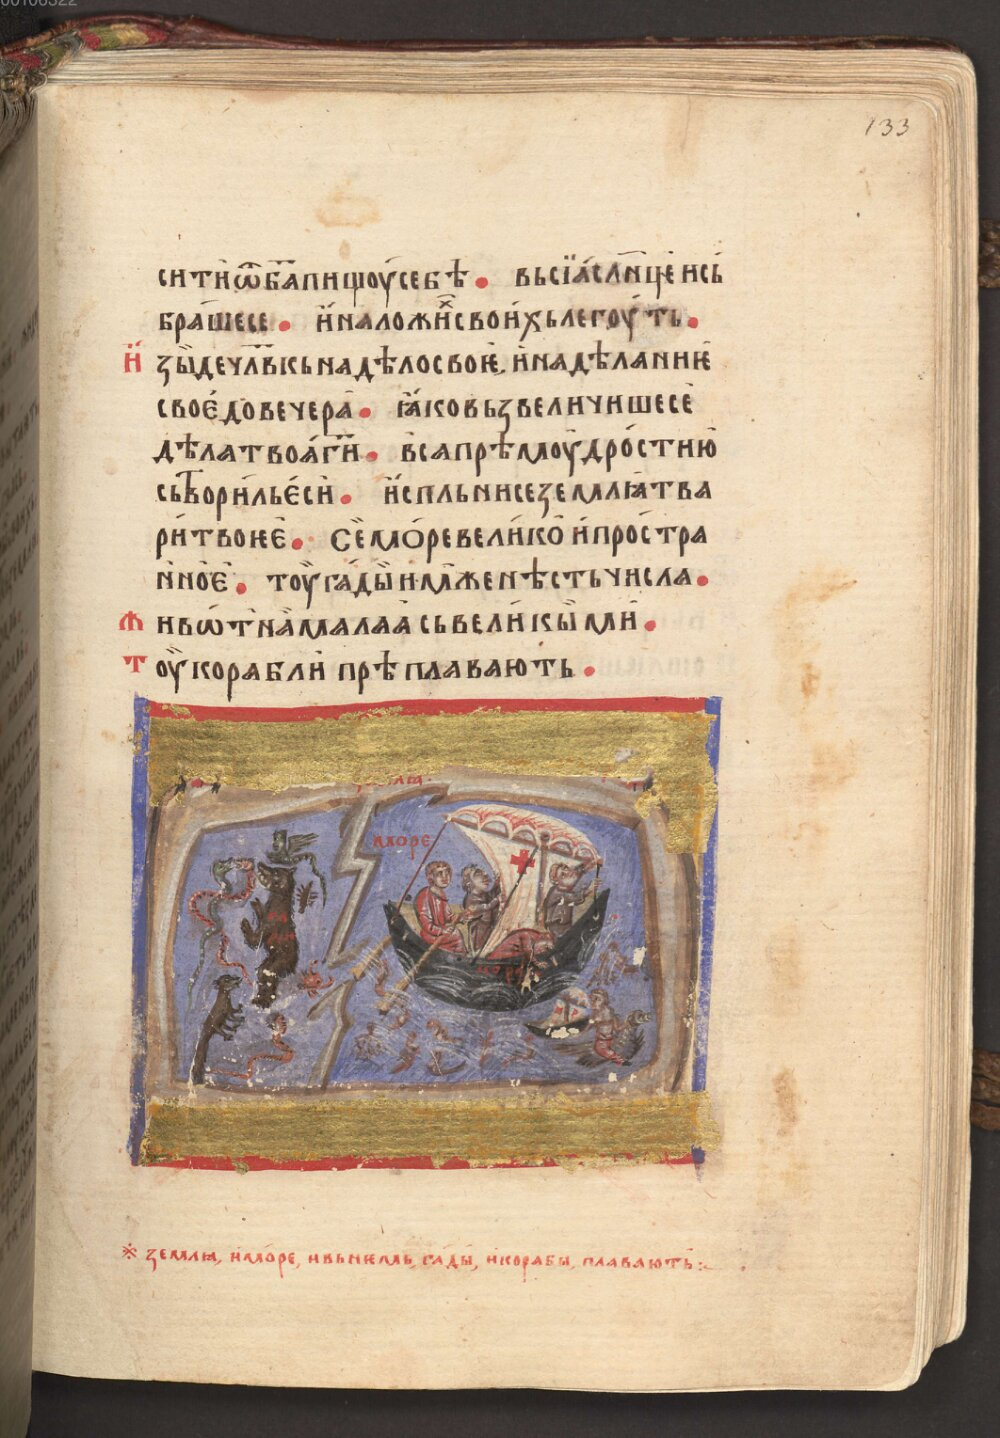 00106322
133
сити ѿ ба̄ пищоу́ себѣ • вьсїꙗ́ слн҃це и сь
бра́шесе • и҆ на ло́жих̾ свои́хь легоу́ть •
И҆зы́де чл҃вкь на дѣло свое҆, и҆ на дѣлание҆
свое́ до вечера • ꙗ҆ко вьзвеличише се҆
дѣла твоꙗ́ ги҃ • вса прѣмоу́дро́стию҆
сьтвори́ль е҆си • и҆спльни се земля̀ тва
ри́ твоѥ҆ • се мо́ре вели́ко҆ и҆ простра
нное҆ • тоу̀ га́ды и҆мже нѣсть числа •
Живѡтнаа̀ малаꙗ̀ сь вели́кыми҆ •
Тоу̀ корабли҆ прѣплавають •
море
земля, и҆ мо́ре, и вь нѥмь, га́ды, и҆ корабы, плавають :~